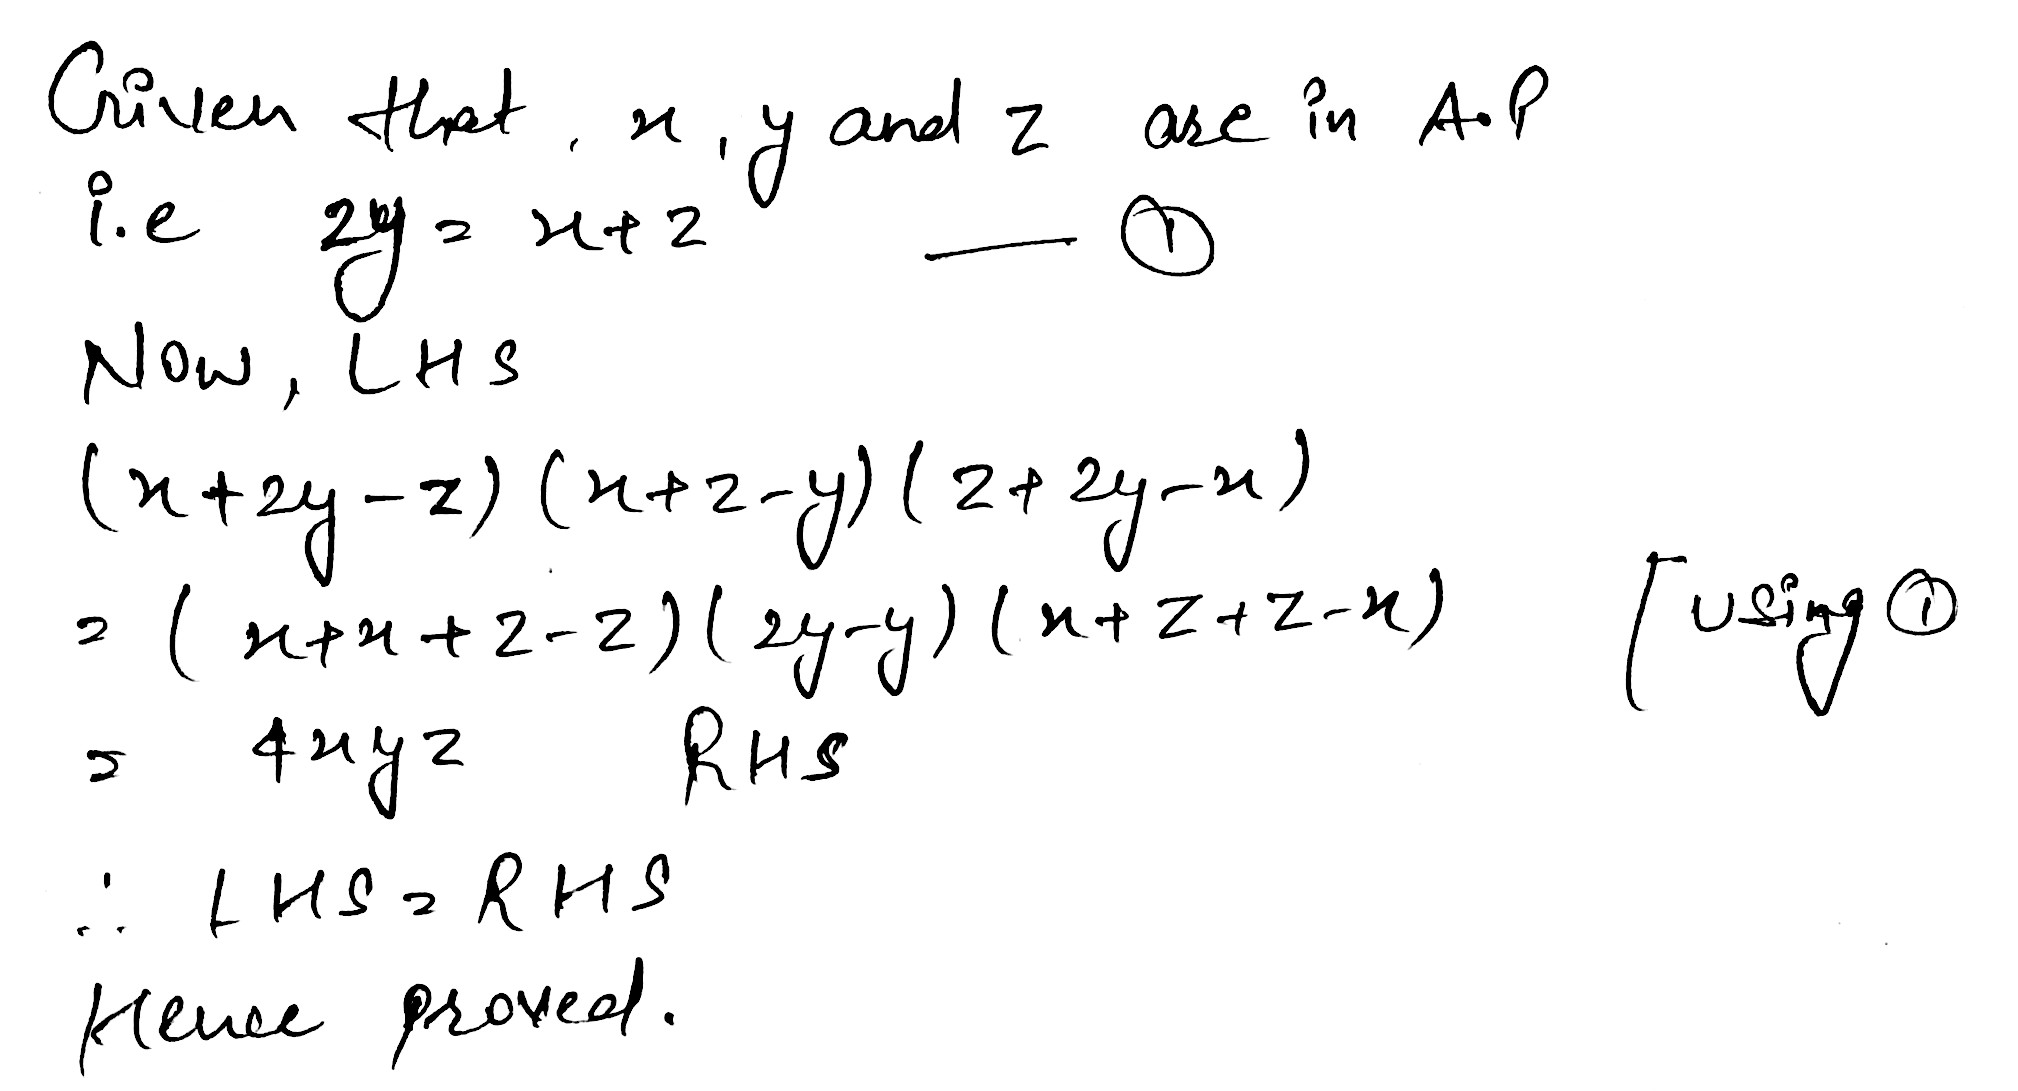 Given that, x, y and z are in A.P
i.e 2y = x+z — ①
Now, LHS
(x+2y-z) (x+z-y) (z+2y-x)
= (x+x+z-z) (2y-y) (x+z+z-x) [using ①
= 4xyz RHS
∴ LHS = RHS
Hence proved.